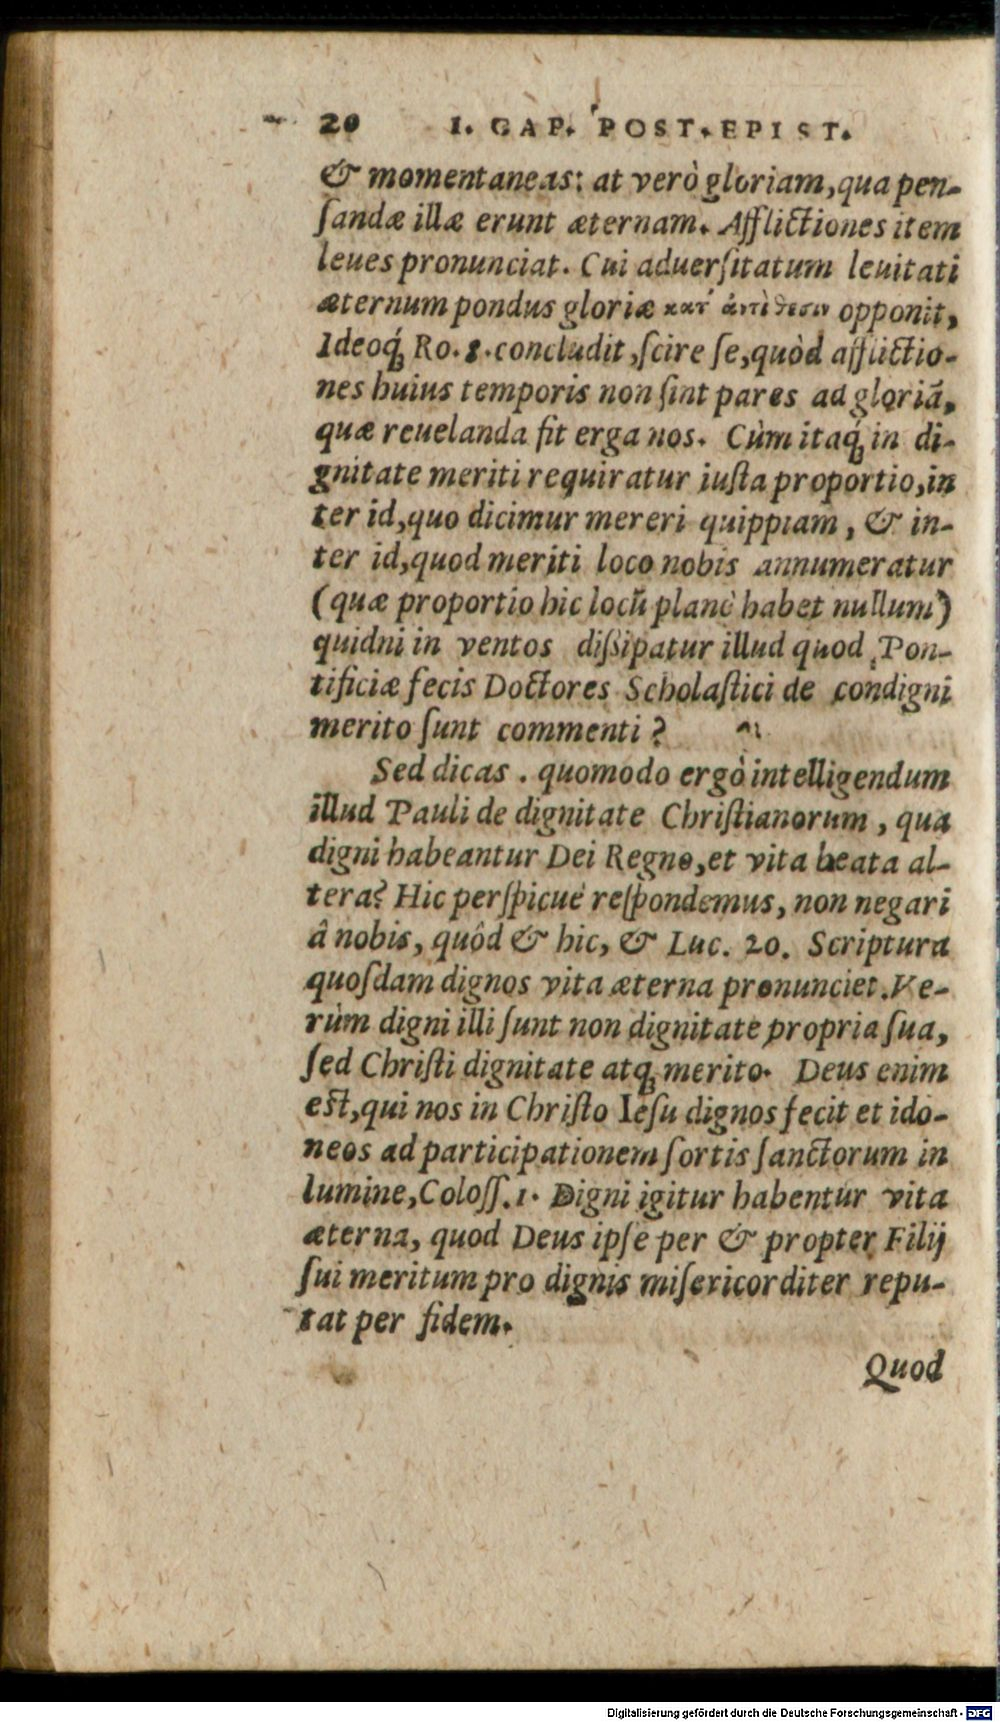 20 I. CAP. POST. EPIST.
& momentaneas: at verò gloriam, qua pen-
ſandæ illæ erunt æternam. Afflictiones item
leues pronunciat. Cui aduerſitatum leuitati
æternum pondus gloriæ κατ' ἀντίθεσιν opponit,
Ideoq́; Ro. 8. concludit, ſcire ſe, quòd afflictio-
nes huius temporis non ſint pares ad gloriā,
quæ reuelanda ſit erga nos. Cùm itaq́; in di-
gnitate meriti requiratur iuſta proportio, in
ter id, quo dicimur mereri quippiam, & in-
ter id, quod meriti loco nobis annumeratur
(quæ proportio hic locū planè habet nullum)
quidni in ventos diſsipatur illud quod Pon-
tificiæ fecis Doctores Scholaſtici de condigni
merito ſunt commenti?
Sed dicas. quomodo ergò intelligendum
illud Pauli de dignitate Chriſtianorum, qua
digni habeantur Dei Regno, et vita beata al-
tera? Hic perſpicuè reſpondemus, non negari
â nobis, quôd & hic, & Luc. 20. Scriptura
quoſdam dignos vita æterna pronunciet. Ve-
rùm digni illi ſunt non dignitate propria ſua,
ſed Chriſti dignitate atq; merito. Deus enim
eſt, qui nos in Chriſto Ieſu dignos fecit et ido-
neos ad participationem ſortis ſanctorum in
lumine, Coloſſ. 1. Digni igitur habentur vita
æterna, quod Deus ipſe per & propter Filij
ſui meritum pro dignis miſericorditer repu-
tat per fidem.
Quod
Digitalisierung gefördert durch die Deutsche Forschungsgemeinschaft - DFG